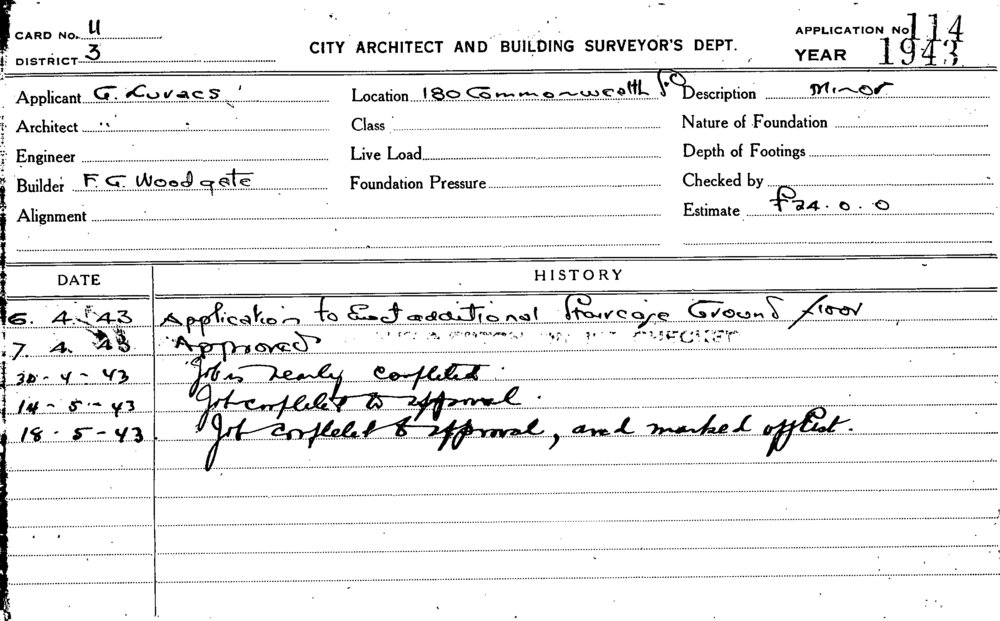 CARD No. 4
DISTRICT 3
CITY ARCHITECT AND BUILDING SURVEYOR'S DEPT.
APPLICATION No 114
YEAR 1943
Applicant G. Luvacs Location 180 Commonwealth St Description Minor
Architect " Class Nature of Foundation
Engineer Live Load Depth of Footings
Builder F. G. Woodgate Foundation Pressure Checked by
Alignment Estimate £24. 0. 0
DATE HISTORY
6. 4. 43 Application to Erect additional Staircase Ground floor
7. 4. 43 Approved CHECKED
30 - 4 - 43 Job is nearly completed.
14 - 5 - 43 Job completed to approval.
18 - 5 - 43 Job completed to approval, and marked off list.